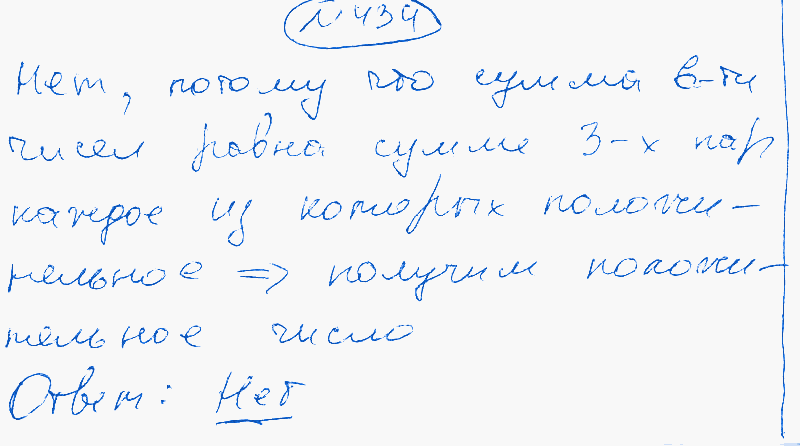 N 434
Нет, потому что сумма 6-ти
чисел равна сумме 3-х пар
каждое из которых положи-
тельное => получим положи-
тельное число
Ответ: Нет